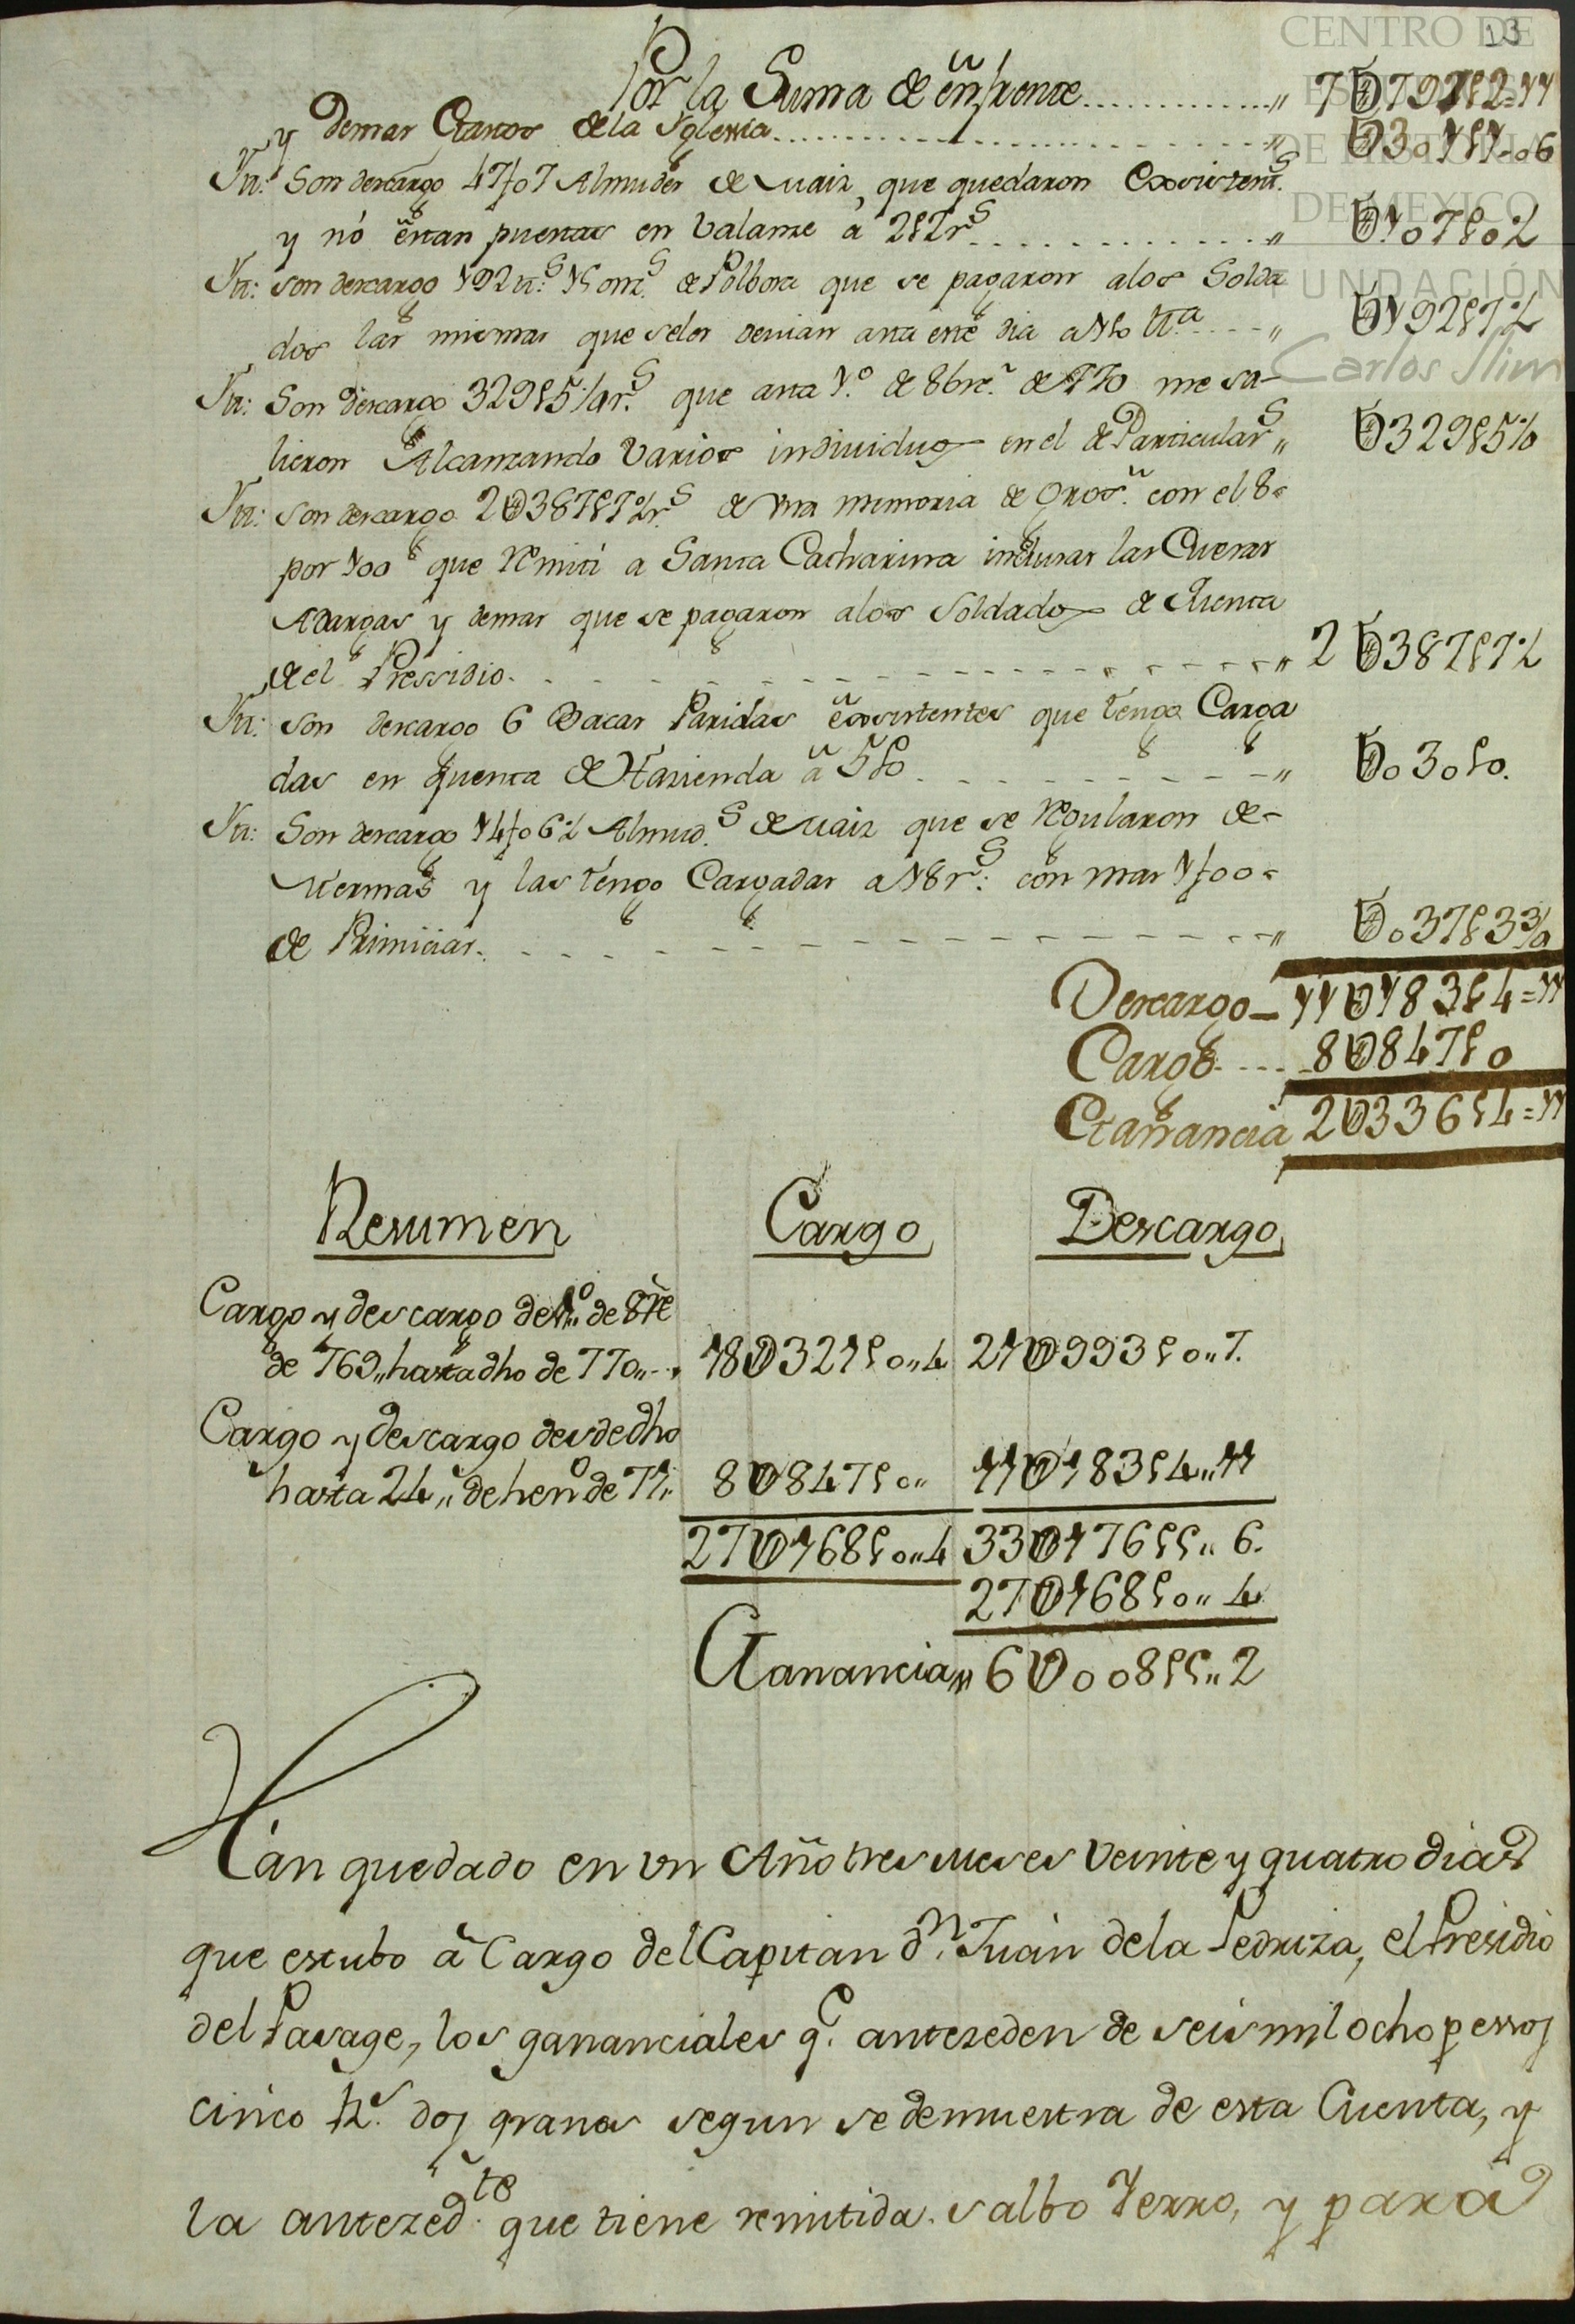 13
CENTRO DE
ESTUDIOS
DE HISTORIA
DE MEXICO
FUNDACIÓN
Carlos Slim
Por la Suma de enfrente
y demas Gastos de la Yglessia
Yt: Son descargo 47f07 Almudes de maiz, que quedaron Exsistens.
y nó estan puestas en balanze a 2p2rs
Yt: son descargo 192 tts 15 onzs de Polbora que se pagaron alos Solda
dos las mismas que seles devian asta este dia a 1p0 tta
Yt: Son descargo 329p5¼rs que asta 1o de 8bre de 770 me sa-
lieron Alcanzando varios individuos en el de Particulars
Yt: son descargo 2U387p7½rs de una memoria de Gros. con el 8
por 100 que remití a Santa Catharina inclusas las Cueras
Adargas y demas que se pagaron alos Soldados de Cuenta
del Pressidio 2U387p7½
Yt: son descargo 6 Bacas Paridas exsistentes que tengo Carga
das en quenta de Hazienda á 5p0 U030p0.
Yt: Son descargo 14f06½ Almuds de maiz que se regularon de
mermas y las tengo Cargadas a 18rs: con mas 1f00
de Primicias U037p3¾
Descargo 11U183p4=11
Cargo 8U847p0
Ganancia 2U336p4=11
Resumen Cargo Descargo
Cargo y descargo de 1o de 8re
de 769,, hasta dho de 770,, 18U321p0,,4 21U993p0,,7.
Cargo y descargo desde dho
hasta 24,, de heno de 71,, 8U847p0,, 11U183p4,,11
27U168p0,,4 33U176p5,,6.
27U168p0,,4
Ganancia,, 6U008p5,,2
Hán quedado en un Año tres meses veinte y quatro dias
que estubo á Cargo del Capitan dn. Juan dela Pedriza, el Presidio
del Pasage, los gananciales qe. antezeden de seis mil ocho pessos
cinco rs. dos granos segun se demuestra de esta Cuenta, y
la antezedte. que tiene remitida. salbo Yerro, y para